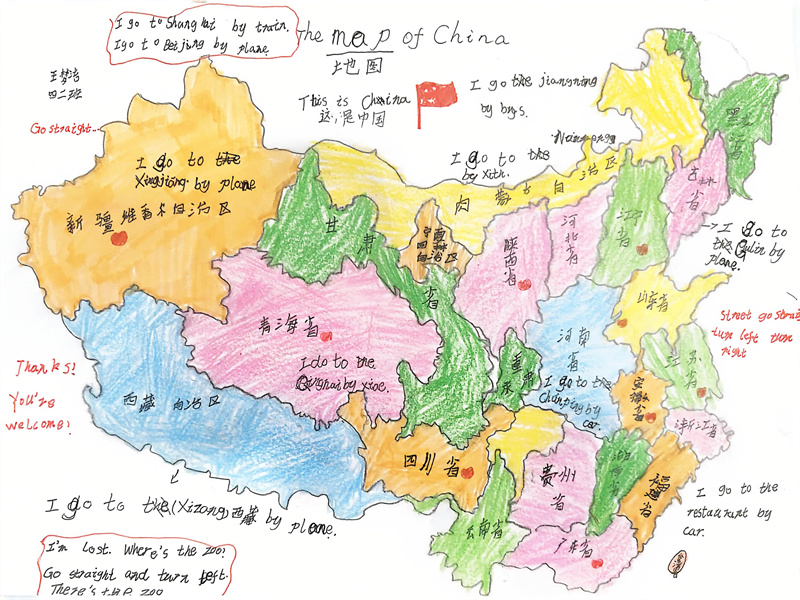 I go to Shanghai by train.
I go to Beijing by plane.
The map of China
地图
王梦洁
四二班
This is China
这是中国
I go the jiangning
by bys.
Go straight..
I go to the
Xingjiang by plane
新疆维吾尔自治区
I go to the
by
内蒙古自治区
甘肃
省
宁夏
回
自治区
陕西省
河北省
江
省
吉林
省
黑
江省
→ I go to
the Gulin by
plane.
青海省
I do to the
Qinghai by xioe.
西藏自治区
河南
省
山东省
江苏
省
Street go strai
turn left turn
right
Thanks!
You're
welcome!
重
庆
I go to the
by
car.
安
徽
省
浙江省
四川省
贵州
省
湖
南
省
福
建
省
云南省
广东省
I go to the (Xizang) 西藏 by plane.
I go to the
restaurant by
car.
I'm lost. Where's the zoo?
Go straight and turn left.
There's the zoo